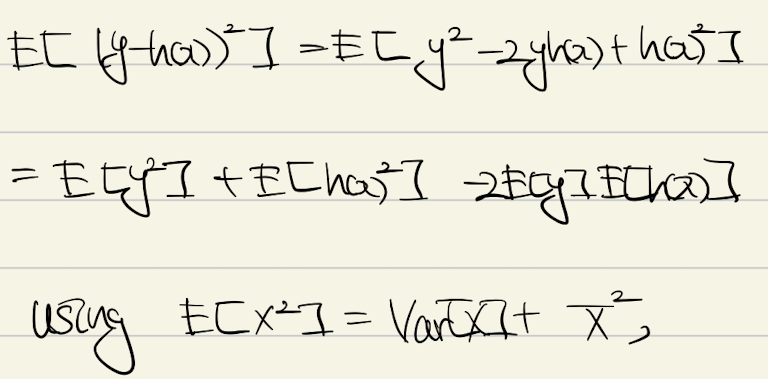 E[(y-h(x))²] = E[y² - 2yh(x) + h(x)²]
= E[y²] + E[h(x)²] - 2E[y]E[h(x)]
using E[X²] = Var[X] + X̅²,